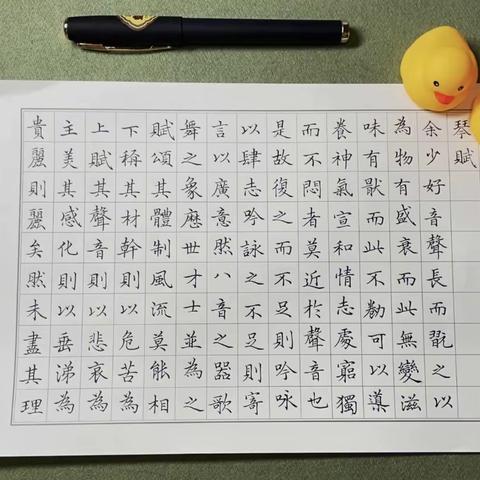 琴賦
余少好音聲長而翫之以
為物有盛衰而此無變滋
味有猒而此不勌可以導
養神氣宣和情志處窮獨
而不悶者莫近於聲音也
是故復之而不足則吟咏
以肆志吟詠之不足則寄
言以廣意然八音之器歌
舞之象歷世才士並為之
賦頌其體制風流莫能相
下稱其材幹則以危苦為
上賦其聲音則以悲哀為
主美其感化則以垂涕為
貴麗則麗矣然未盡其理